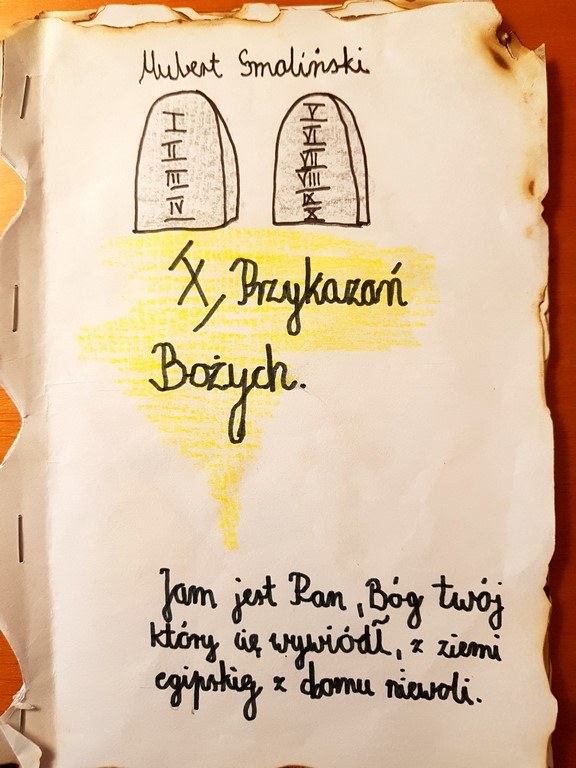 Hubert Smoliński
I
II
III
IV
V
VI
VII
VIII
IX
X
X, Przykazań
Bożych.
Jam jest Pan, Bóg twój
który cię wywiódł, z ziemi
egipskiej z domu niewoli.